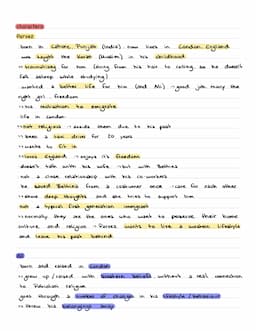 characters
Parvez
born in Lahore, Punjab (India), now lives in London, England
was taught the Koran (Muslim) in his childhood
↳ traumatising for him (string from his hair to ceiling so he doesn't
fall asleep while studying)
wanted a better life for him (and Ali) → good job, marry the
right girl, freedom
↳ his motivation to emigrate
life in London:
↳ not religious → avoids them due to his past
↳ been a taxi driver for 20 years
↳ wants to fit in
↳ loves England → enjoys it's freedom
doesn't talk with his wife → but with Bettina
not a close relationship with his co-workers
he saved Bettina from a customer once → care for each other
↳ share deep thoughts and she tries to support him
not a typical first generation immigrant
↳ normally they are the ones who want to preserve their home
culture and religion → Parvez wants to live a western lifestyle
and leave his past behind
Ali
born and raised in London
↳ grew up / raised with western beliefs without a real connection
to Pakistan religion
goes through a number of changes in his lifestyle / behaviour
↳ threw his belongings away